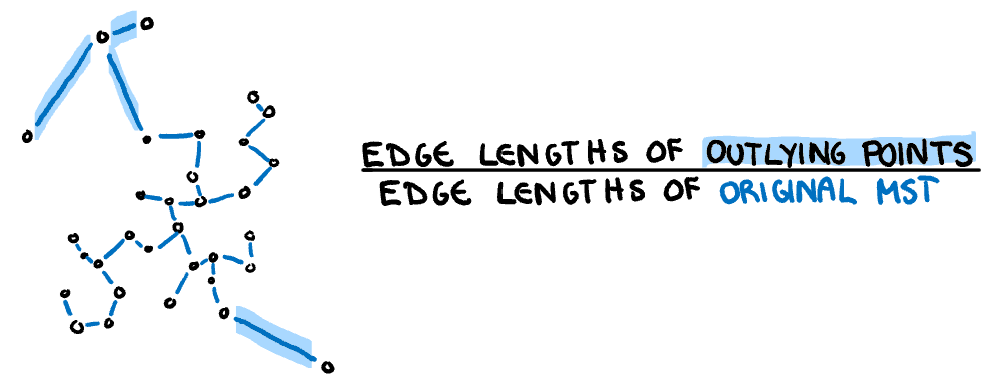 EDGE LENGTHS OF OUTLYING POINTS
EDGE LENGTHS OF ORIGINAL MST